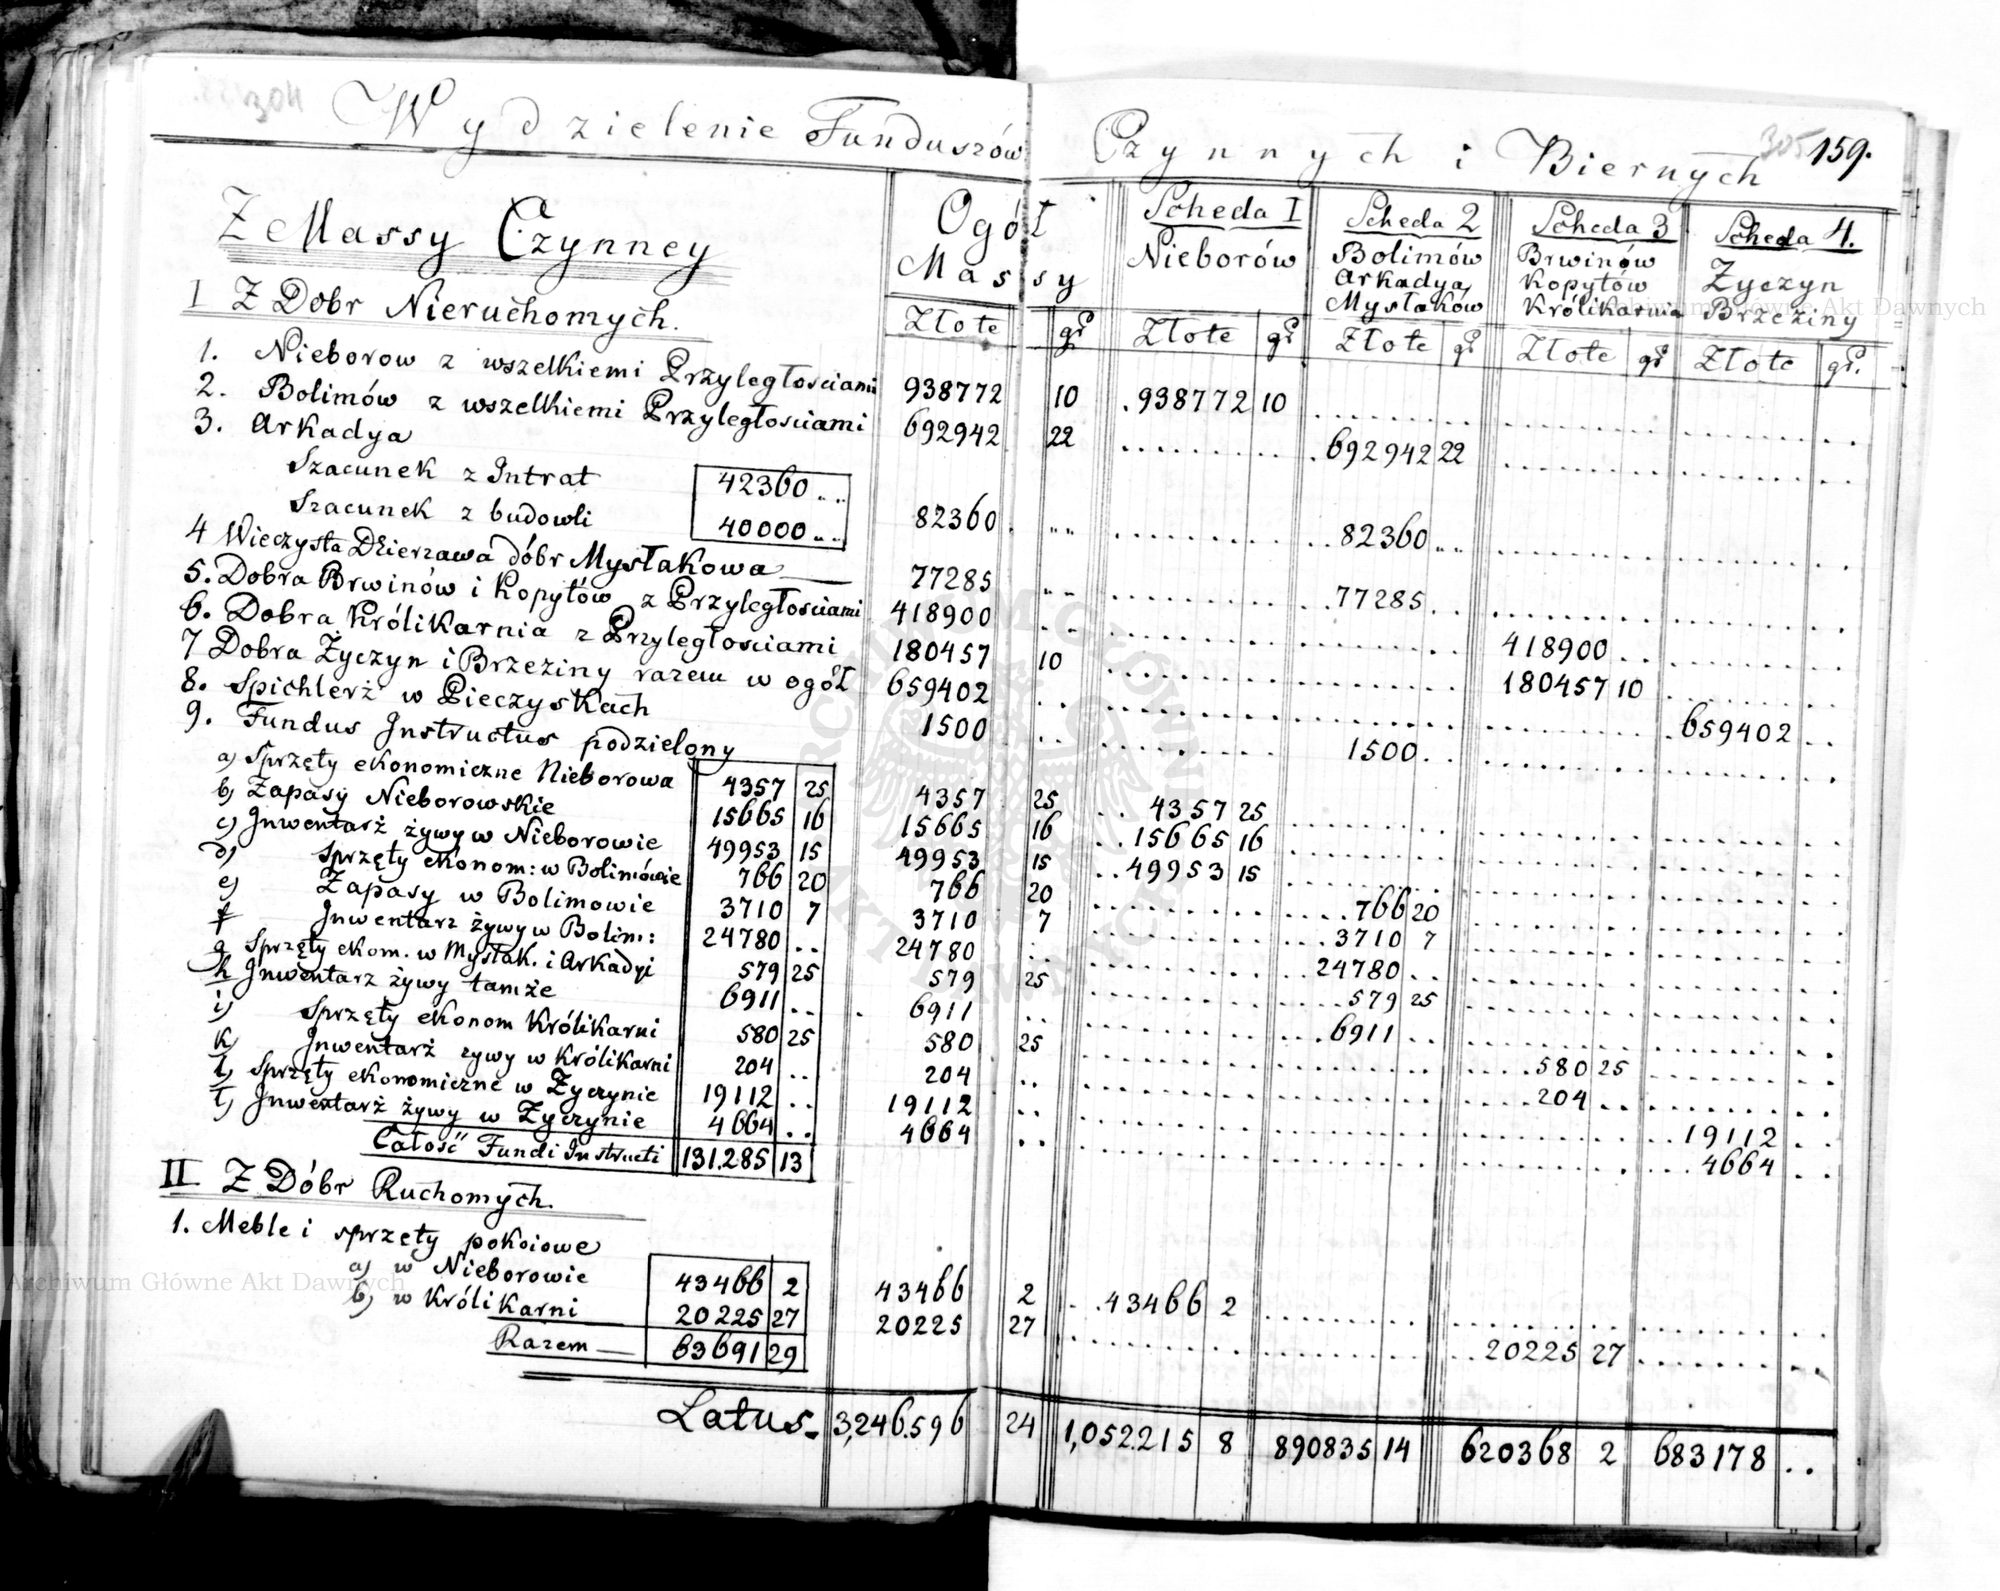 304
Wydzielenie Funduszów Czynnych i Biernych 305 159.
Z Massy Czynney
Ogół Massy | Scheda I Nieborów | Scheda 2 Bolimów Arkadya Mysłaków | Scheda 3 Brwinów Kopytów Królikarnia | Scheda 4. Zyczyn Brzeziny
Złote | gr | Złote | gr | Złote | gr | Złote | gr | Złote | gr.
I Z Dobr Nieruchomych.
1. Nieborow z wszelkiemi Przyległosciami 938772 10 .938772 10
2. Bolimów z wszelkiemi Przyległosciami 692942 22 .692942 22
3. Arkadya
Szacunek z Intrat 42360 ..
Szacunek z budowli 40000 .. 82360 .. ..82360 ..
4 Wieczysta Dzierzawa dóbr Mysłakowa 77285 .. ..77285 ..
5. Dobra Brwinów i Kopytów z Przyległosciami 418900 .. 418900 ..
6. Dobra Królikarnia z Przyległosciami 180457 10 180457 10
7 Dobra Życzyn i Brzeziny razem w ogół 659402 .. .659402 ..
8. Spichlerż w Pieczyskach 1500 .. 1500 ..
9. Fundus Instructus podzielony
a) Sprzęty ekonomiczne Nieborowa 4357 25 4357 25 ..4357 25
b) Zapasy Nieborowskie 15665 16 15665 16 ..15665 16
c) Inwentarż żywy w Nieborowie 49953 15 49953 15 ..49953 15
d) Sprzęty ekonom: w Bolimówie 766 20 766 20 ....766 20
e) Zapasy w Bolimowie 3710 7 3710 7 ...3710 7
f Inwentarz żywy w Bolim: 24780 .. 24780 .. 24780 ..
g Sprzęty ekom. w Mysłak. i Arkadyi 579 25 579 25 ....579 25
h Inwentarz żywy tamże 6911 .. 6911 .. ...6911 ..
i) Sprzęty ekonom Królikarni 580 25 580 25 ....580 25
k) Inwentarż zywy w Królikarni 204 .. 204 .. ...204 ..
l) Sprzęty ekonomiczne w Zyczynie 19112 .. 19112 .. ..19112 ..
ł) Inwentarż żywy w Zyczynie 4664 .. 4664 .. ...4664 ..
Całość Fundi Instructi 131.285 13
II Z Dóbr Ruchomych.
1. Meble i sprzęty pokoiowe
a) w Nieborowie 43466 2 43466 2 ..43466 2
b) w Królikarni 20225 27 20225 27 ..20225 27
Razem — 63691 29
Latus. 3,246.596 24 1,052.215 8 890835 14 620368 2 683178 ..
Archiwum Główne Akt Dawnych
Archiwum Główne Akt Dawnych
ARCHIWUM GŁÓWNE AKT DAWNYCH